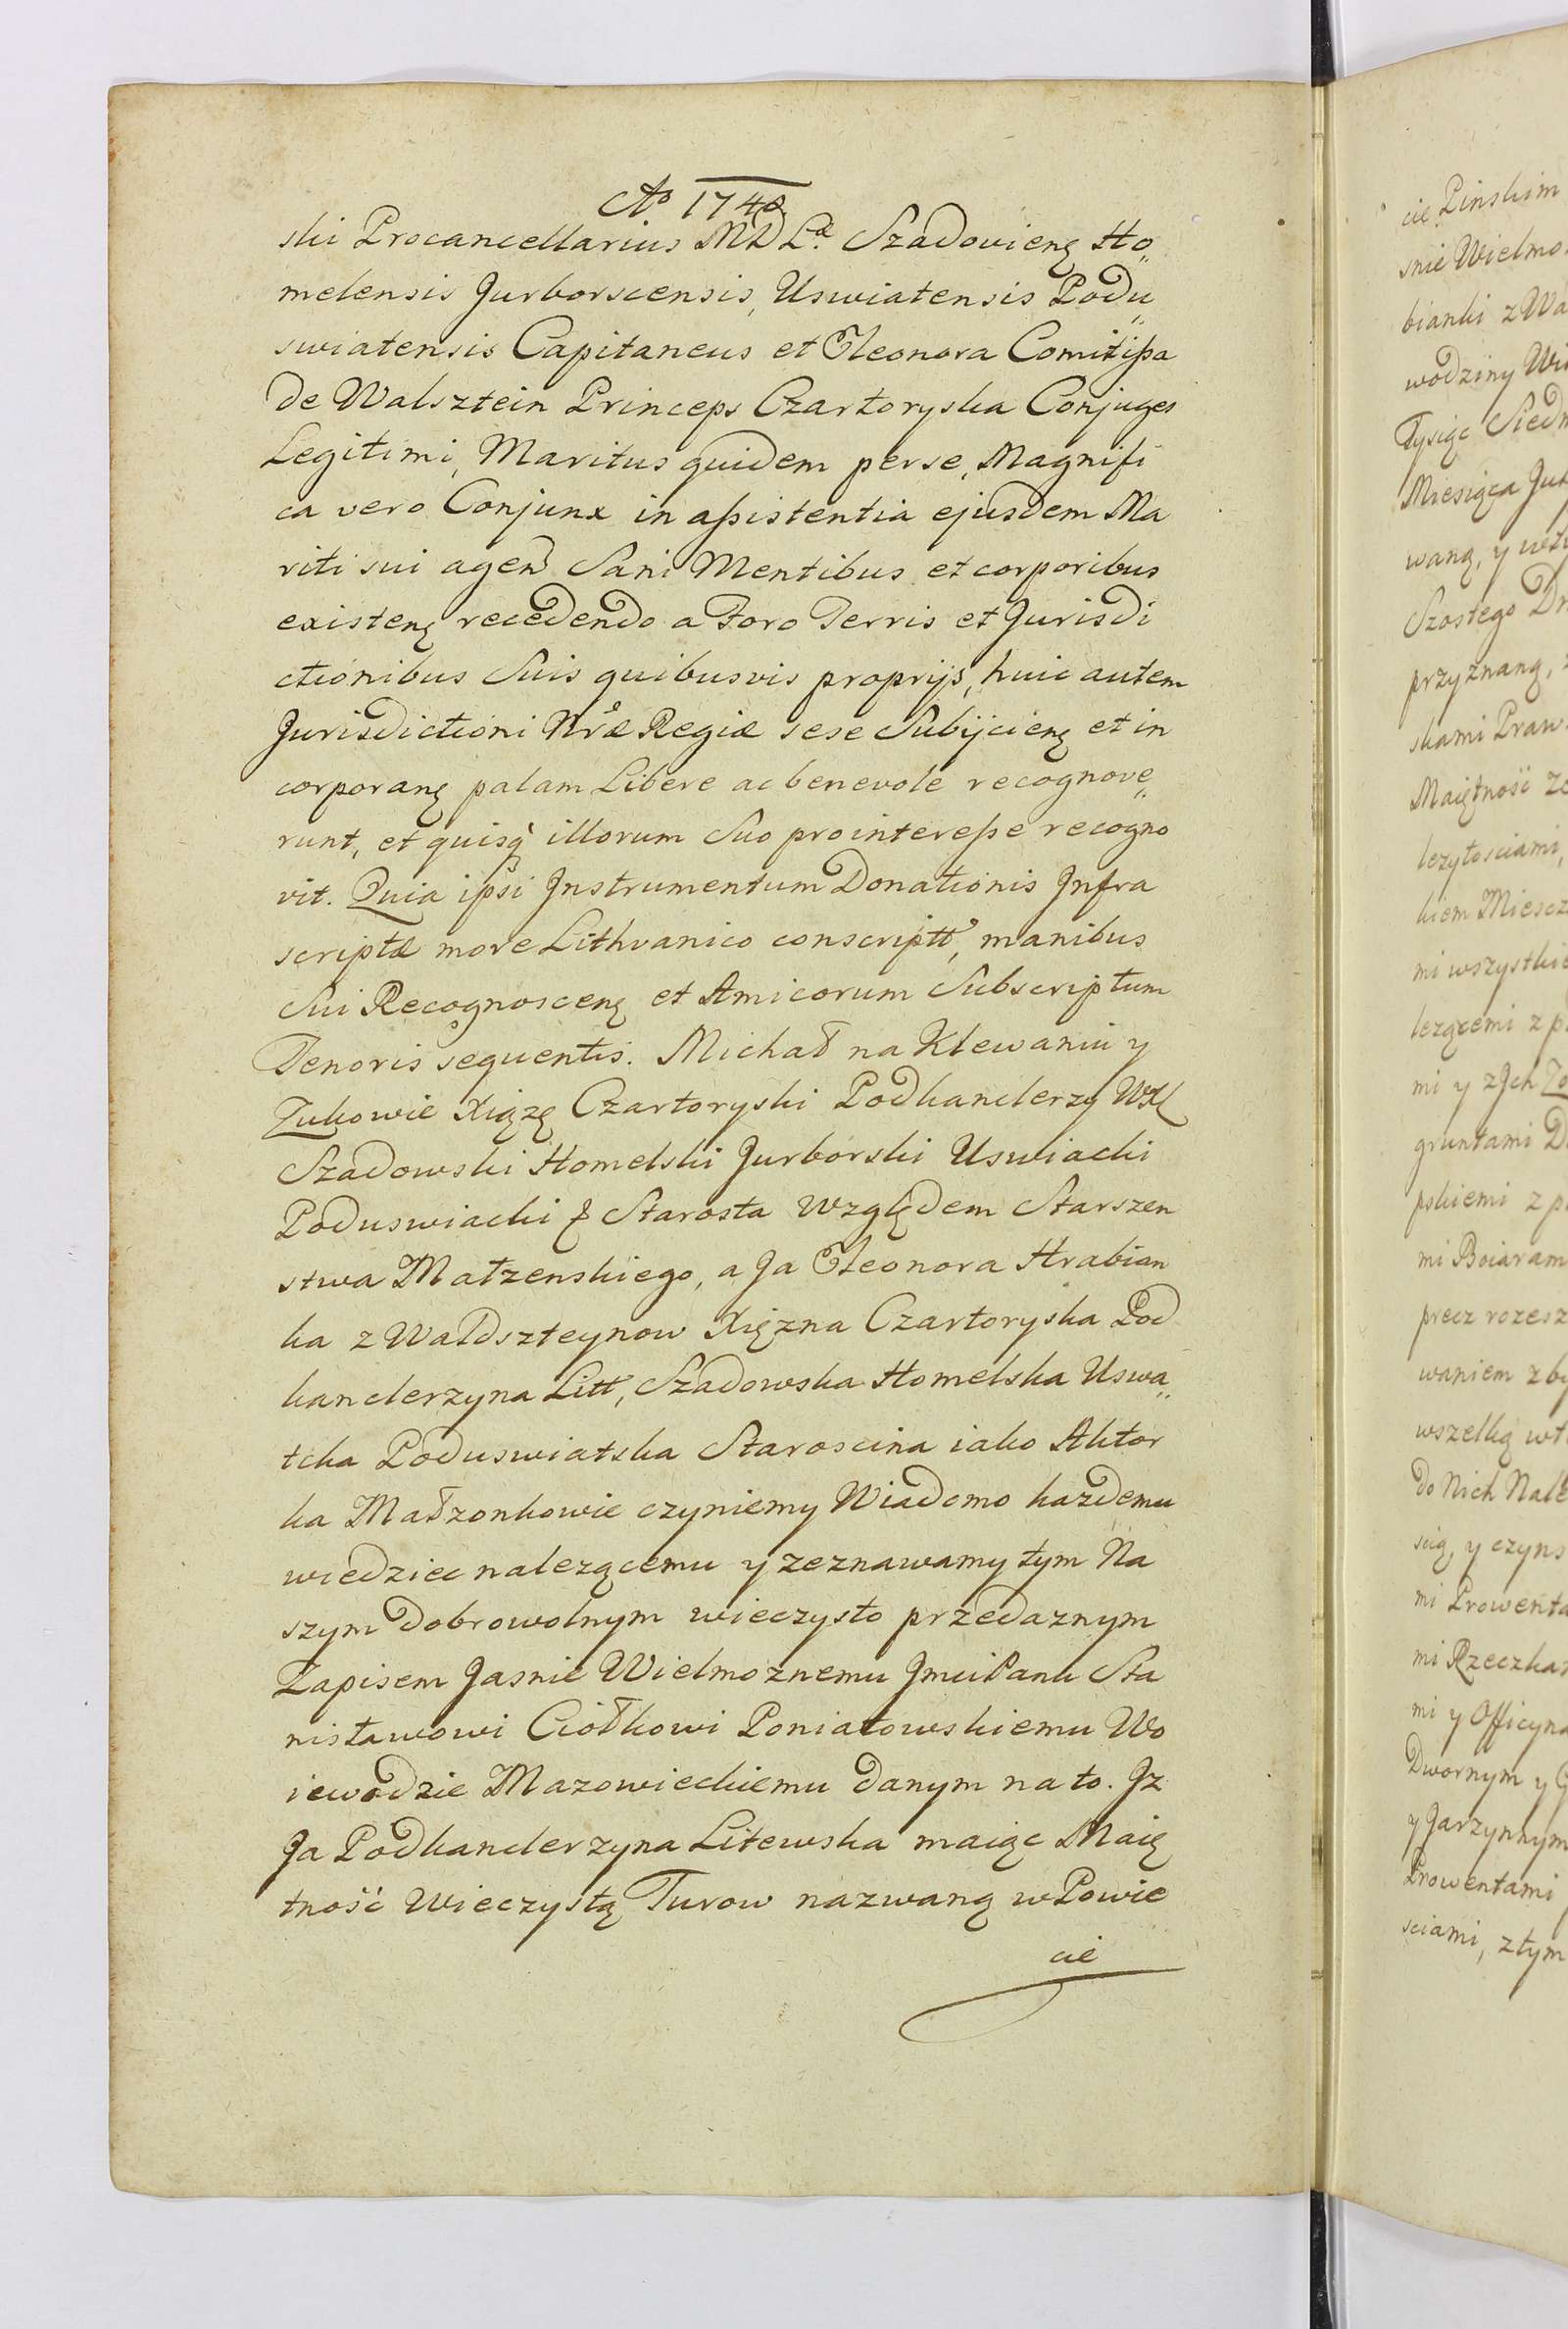 Ao 1740
ski Procancellarius M D L. Szadovienꝫ Ho„
melensis Jurborscensis, Uswiatensis Podu„
swiatensis Capitaneus et Eleonora Comitißa
de Walsztein Princeps Czartoryska Conjuges
Legitimi, Maritus quidem perse, Magnifi
ca vero Conjunx in aßistentia ejusdem Ma
riti sui agen Sani Mentibus et corporibus
existenꝫ recedendo a Foro Terris et Jurisdi
ctionibus Suis quibusvis proprijs, huic autem
Jurisdictioni Nræ Regiæ sese Subijcienꝫ et in
corporanꝫ palam Libere ac benevole recognove„
runt, et quisq illorum Suo prointereße recogno
vit. Quia ipsi Instrumentum Donationis Infra
scriptæ more Lithvanico conscriptt, manibus
Sui Recognoscenꝫ et Amicorum Subscriptum
Tenoris sequentis. Michał na Klewaniu y
Zukowie Xiązę Czartoryski Podkanclerzy WXL
Szadowski Homelski Jurborski Uswiacki
Poduswiacki & Starosta Względem Starszen
stwa Małzenskiego, a Ja Eleonora Hrabian
ka z Waldszteynow Xięzna Czartoryska Pod
kanclerzyna Litt, Szadowska Homelska Uswa„
tcka Poduswiatska Staroscina iako Aktor
ka Małzonkowie czyniemy Wiadomo kazdemu
wiedziec nalezącemu y zeznawamy tym Na
szym Dobrowolnym wieczysto przedaznym
Zapisem Jasnie Wielmoznemu Jmci Panu Sta
nisławowi Ciółkowi Poniatowskiemu Wo
iewodzie Mazowieckiemu danym na to. Jz
Ja Podkanclerzyna Litewska maiąc Maię
tność Wieczystą Turow nazwaną w Powie
cie
cie Pinskim
snie Wielmo
bianki z Wa
wodziny Wi
Tysiąc Siedm
Miesiąca Ju
waną, y
Szostego
przyznaną,
skami Praw
Maiętność
lezytosciami,
kiem Miescz
mi wszystkie
lezącemi z
mi y z Jch
gruntami
pskiemi z
mi Boiaram
precz rozesz
waniem z
wszelką
do Nich Nale
scią, y czyns
mi Prowenta
mi Rzeczka
mi y Officyna
Dwornym y
y Jarzynnym
Prowentami
sciami, z tym